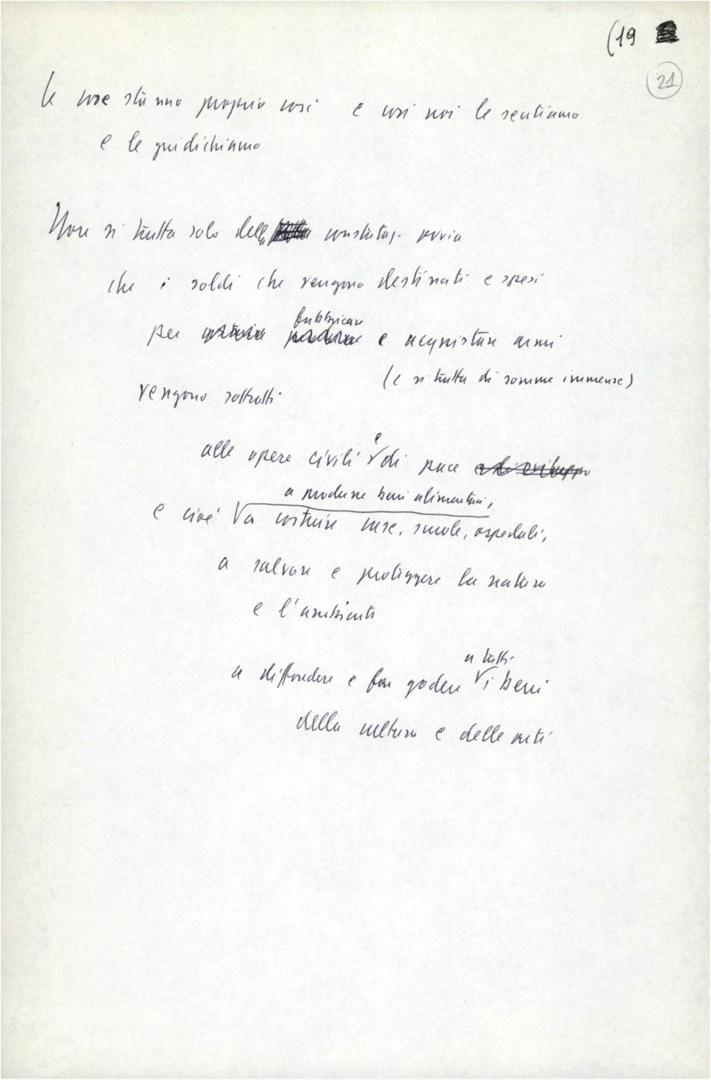 (19
21
le cose stanno proprio così e così noi le sentiamo
e le giudichiamo
Non si tratta solo della constataz. ovvia
che i soldi che vengono destinati e spesi
fabbricare
per e acquistare armi
(e si tratta di somme immense)
vengono sottratti
e
alle opere civili di pace e di sviluppo
a produrre beni alimentari,
e cioè a costruire case, scuole, ospedali,
a salvare e proteggere la natura
e l'ambiente
a tutti
a diffondere e far godere i beni
della cultura e delle arti